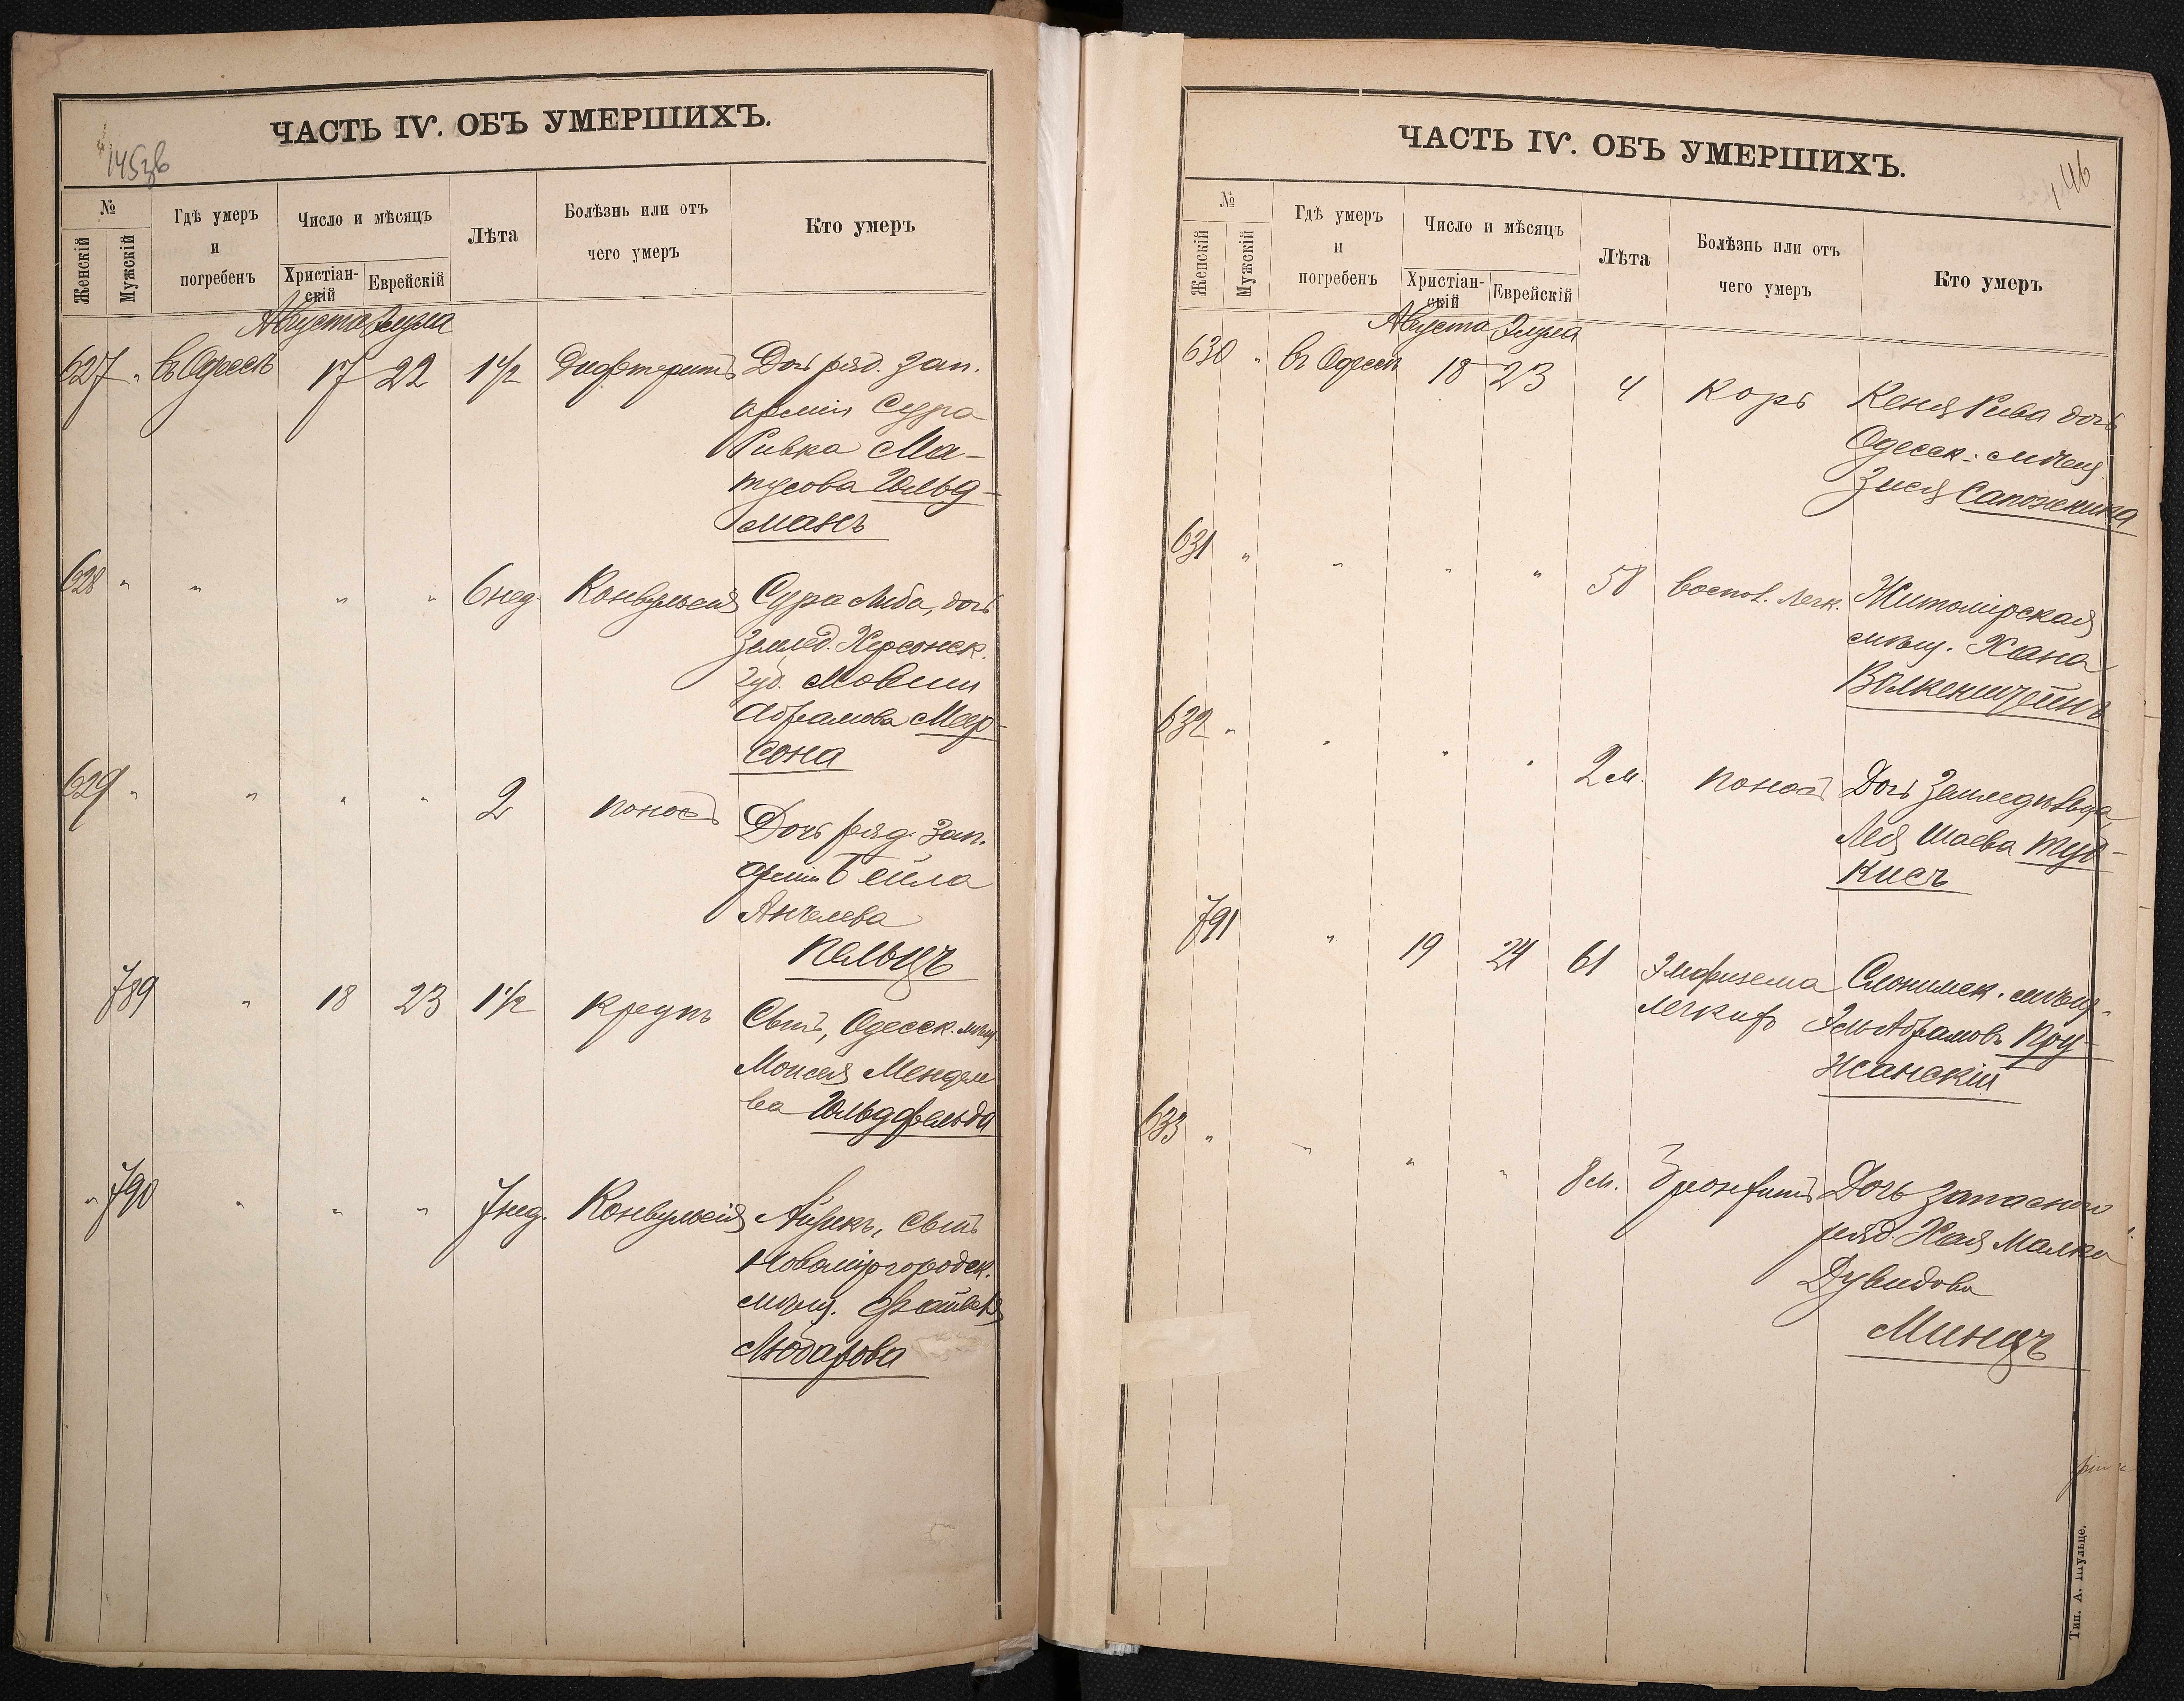 ЧАСТЬ IV. ОБЪ УМЕРШИХЪ.
145зв
№
Женскій
Мужскій
Гдѣ умеръ
и
погребенъ
Число и мѣсяцъ
Христіан-
скій
Еврейскій
Лѣта
Болѣзнь или отъ
чего умеръ
Кто умеръ
Августа Элула
627 " въ Одессѣ 17 22 1 1/2 Дифтеритъ Дочь ряд. зап.
арміи Сура
Ривка Ма-
тусова Гольд-
манъ
628 " " " " 6 нед. Конвульсія Сура Либа, дочь
Землед. Херсонск.
Губ. Мовши
Абрамова Меер-
сона
629 " " " " 2 поносъ Дочь ряд. зап.
арміи Бейла
Анчелева
Пельцъ
789 " 18 23 1 1/2 крупъ Сынъ, Одесск. мѣщ.
Моисея Менделе
ва Гольдфельда
" 790 " " " 7 нед. Конвульсія Айзикъ, сынъ
Новомиргородск.
мѣщ. Файвеля
Любарова
ЧАСТЬ IV. ОБЪ УМЕРШИХЪ.
146
№
Женскій
Мужскій
Гдѣ умеръ
и
погребенъ
Число и мѣсяцъ
Христіан-
скій
Еврейскій
Лѣта
Болѣзнь или отъ
чего умеръ
Кто умеръ
Августа Элула
630 " въ Одессѣ 18 23 4 корь Кеня Рива дочь
Одесск. мѣщ.
Зися Сапожника
631 " " " " 58 воспал. легк. Житомірская
мѣщ. Хана
Волкенштейнъ
632 " " " " 2 м. поносъ Дочь Земледѣльца,
Лея Шаева Туб-
кисъ
791 " 19 24 61 Эмфизема Слонимск. мѣщ.
легкихъ Эль Абрамовъ Пру-
жанскій
633 " " " " 8 м. Бронхитъ Дочь запасного
ряд. Хая Малка
Дувидова
Минцъ
Тип. А. Шульце.